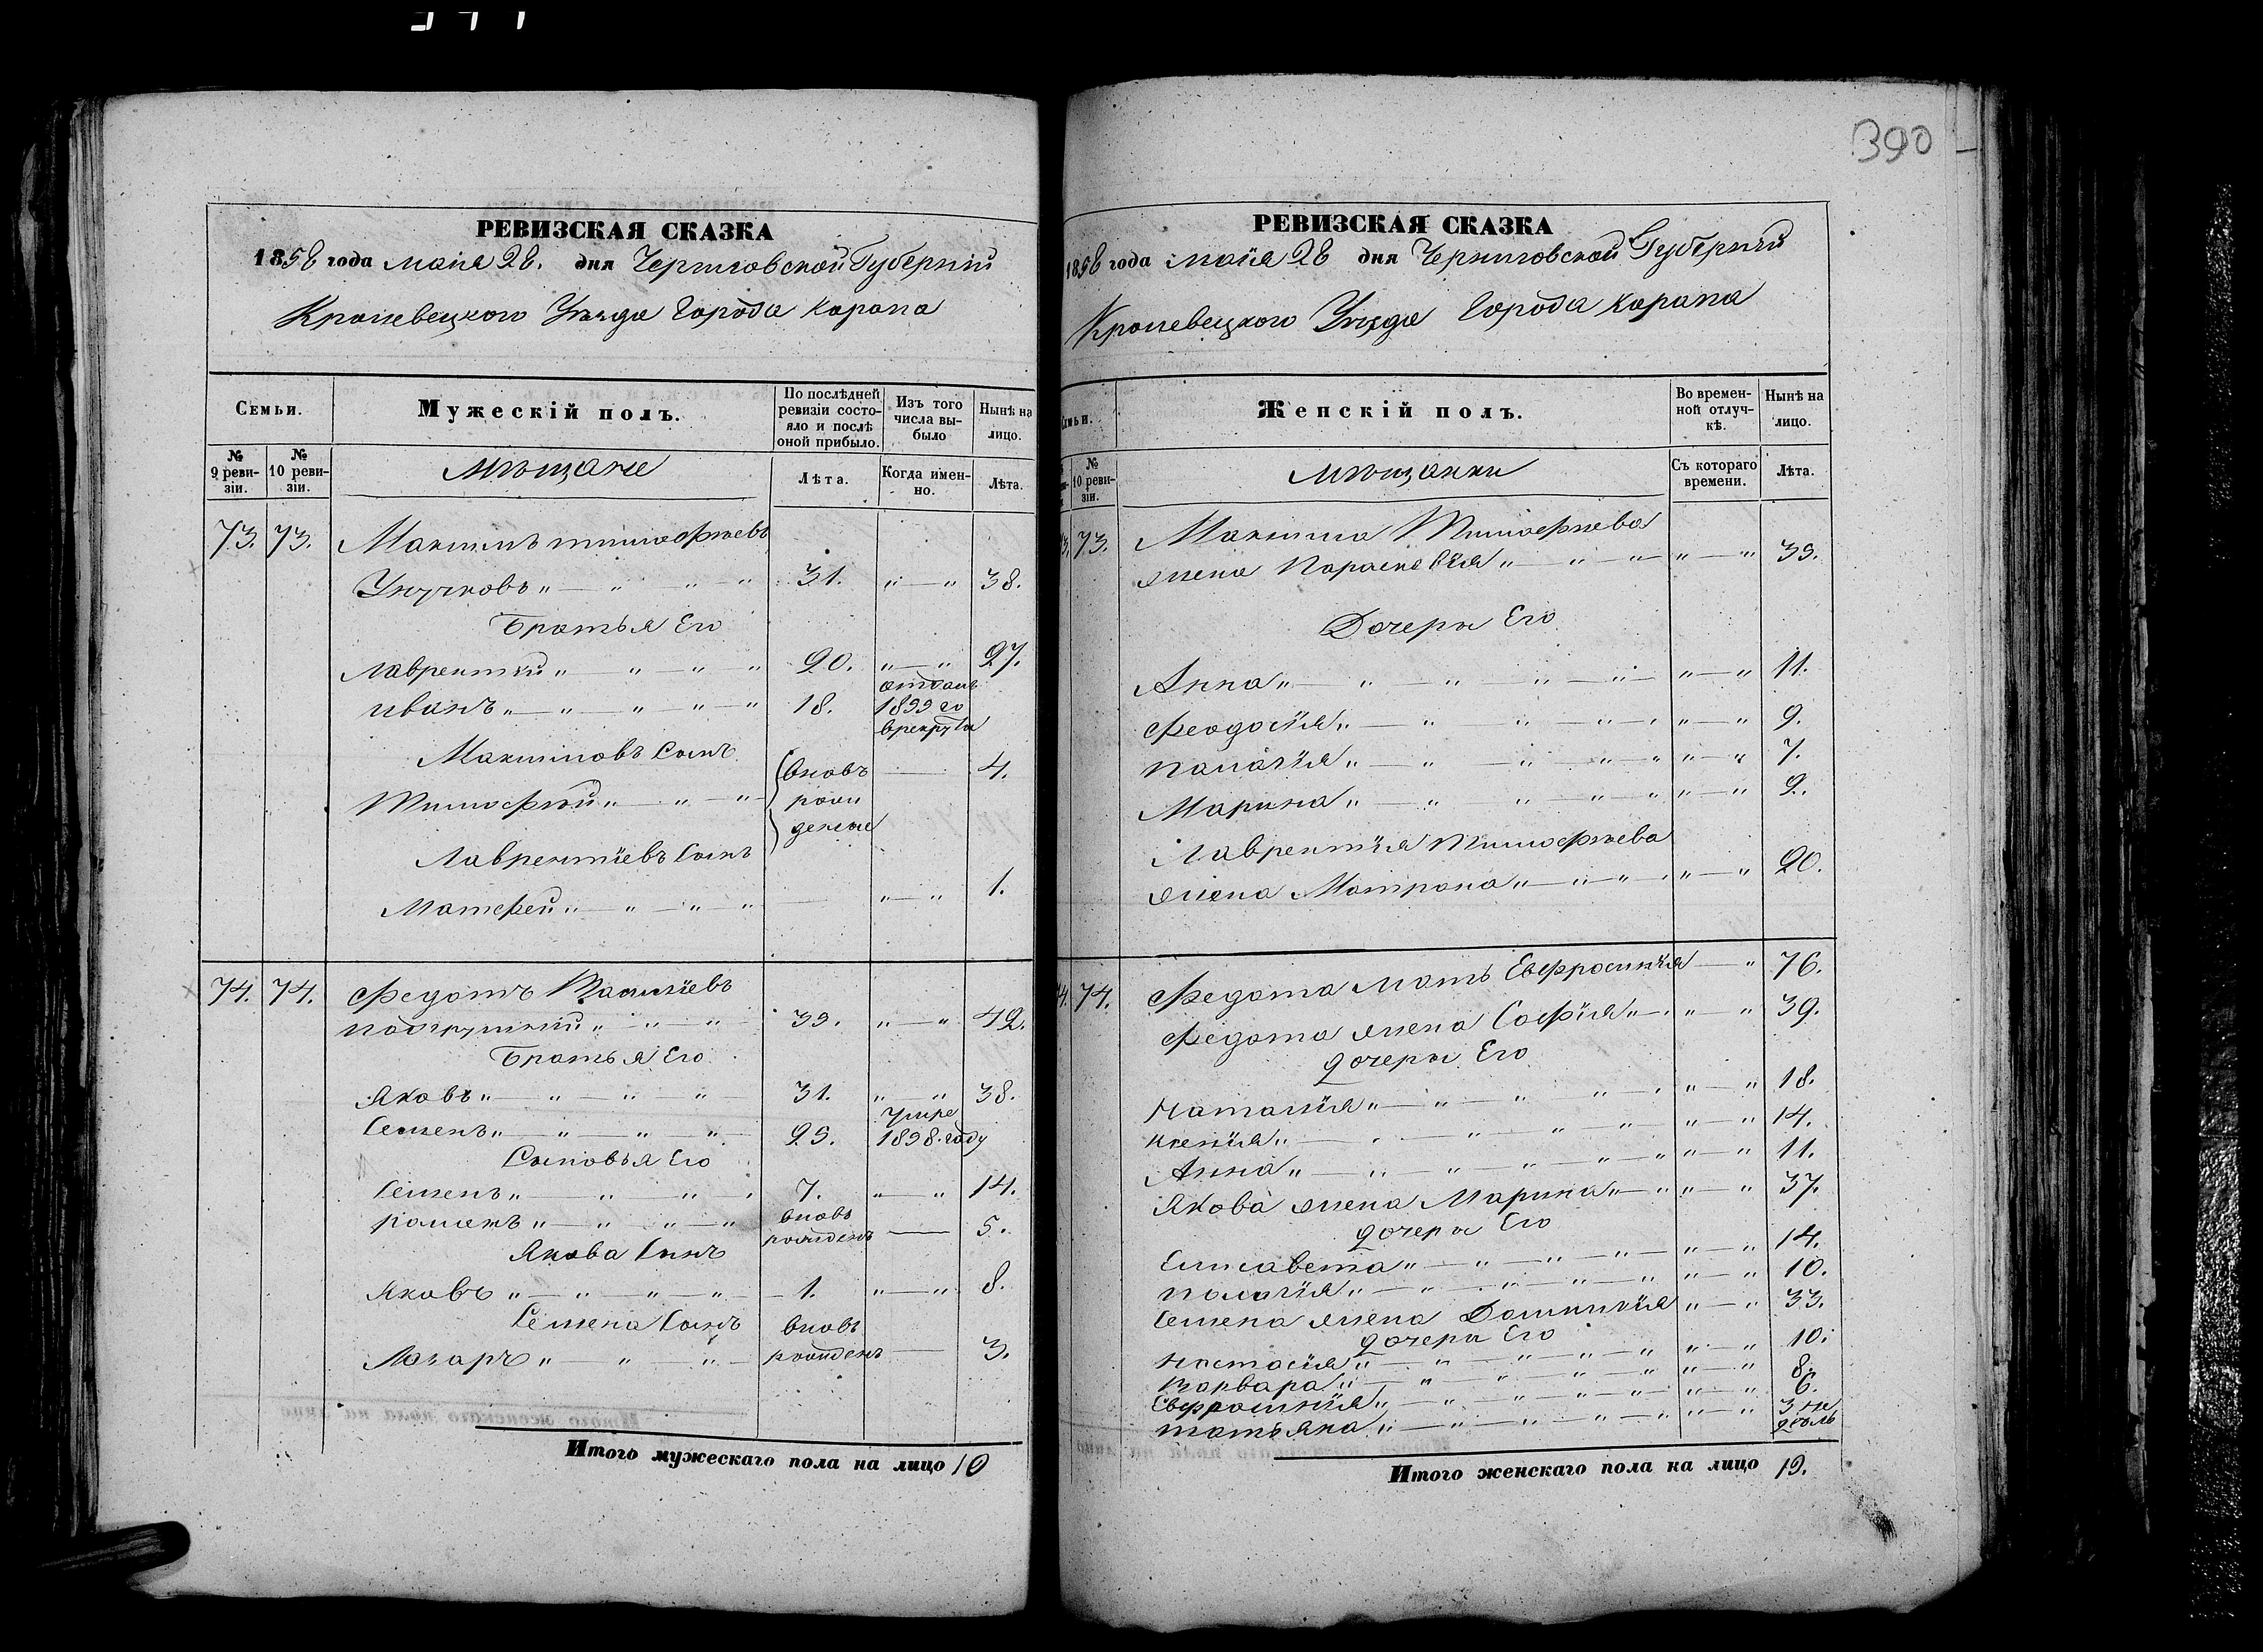 390
РЕВИЗСКАЯ СКАЗКА
1858 года майя 28. дня Черниговской Губерніи
Кролевецкого Уезда Города Коропа
Семьи.
Мужескій полъ.
По послѣдней ревизіи состояло и послѣ оной прибыло.
Изъ того числа выбыло
Нынѣ на лицо.
№ 9 ревизіи.
№ 10 ревизіи.
Мѣщане
Лѣта.
Когда именно.
Лѣта.
73. 73. Максимъ Тимофѣевъ
Унучковъ " — " " " 31. " — " 38.
Братья Его
Лаврентий " — " — " — " 20. " — " 27.
Иванъ " — " — " — " — " 18. отданъ 18 го врекрута
Максимовъ Сынъ
Тимофѣй " — " — " вновь рожденые — 4.
Лаврентіевъ Сынъ
Матфей " — " — " — " — " — " 1.
74. 74. Федотъ Василіевъ
" " " 35. " — " 42.
Братья Его
Яковъ " — " — " — " 31. " — " 38.
Семенъ " — " — " — " 25. Умре 1858 году
Сыновья Его
Семенъ " — " — " — " 7. " — " 14.
Романъ " — " — " — " вновь рожденъ — 5.
Якова Сынъ
Яковъ " — " — " — " — 1. " — " 8.
Семена Сынъ
Лазаръ " — " — " — вновь рожденъ — 3.
Итого мужескаго пола на лицо 10
РЕВИЗСКАЯ СКАЗКА
1858 года майя 28 дня Черниговской Губерніи
Кролевецкого Уезда Города Коропа
Семьи.
Женскій полъ.
Во временной отлучкѣ.
Нынѣ на лицо.
№ 10 ревизіи.
Мѣщанки
Съ котораго времени.
Лѣта.
73. Максима Тимофѣева
жена Параскевія " — " — " " — " 35.
Дочери Его
Анна " — " — " — " — " — " — " 11.
Феодосія " — " — " — " — " — " 9.
Палагія " — " — " — " — " " — " 7.
Марина " — " — " — " — " " — " 2.
Лаврентія Тимофѣева
жена Матрона " — " — " " — " 20.
74. Федота мать Евфросинія — " 76.
Федота жена Софія " — " — " 39.
дочери Его
Наталія " — " — " — " — " — " 18.
Ксенія " — " — " — " — " — " 14.
Анна " — " — " — " — " — " " — " 11.
Якова жена Марина " — " " — " 37.
дочери Его
Елисавета " — " — " — " — " — " 14.
Палагія " — " — " — " — " " — " 10.
Семена жена Домникія " — " 33.
дочери Его
Настасія " — " — " — " — " " — " 10.
Варвара " — " — " — " — " " — " 8.
Евфросинія " — " — " — " — " — " 6.
Татьяна " — " — " — " — " " — " 3 недѣль
Итого женскаго пола на лицо 19.